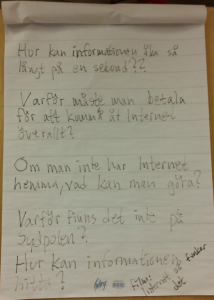 Hur kan informationen åka så
långt på en sekund??
Varför måste man betala
för att komma åt Internet
överallt?
Om man inte har Internet
hemma, vad kan man göra?
Varför finns det inte på
sydpolen?
Hur kan informationen
hitta?
funkar